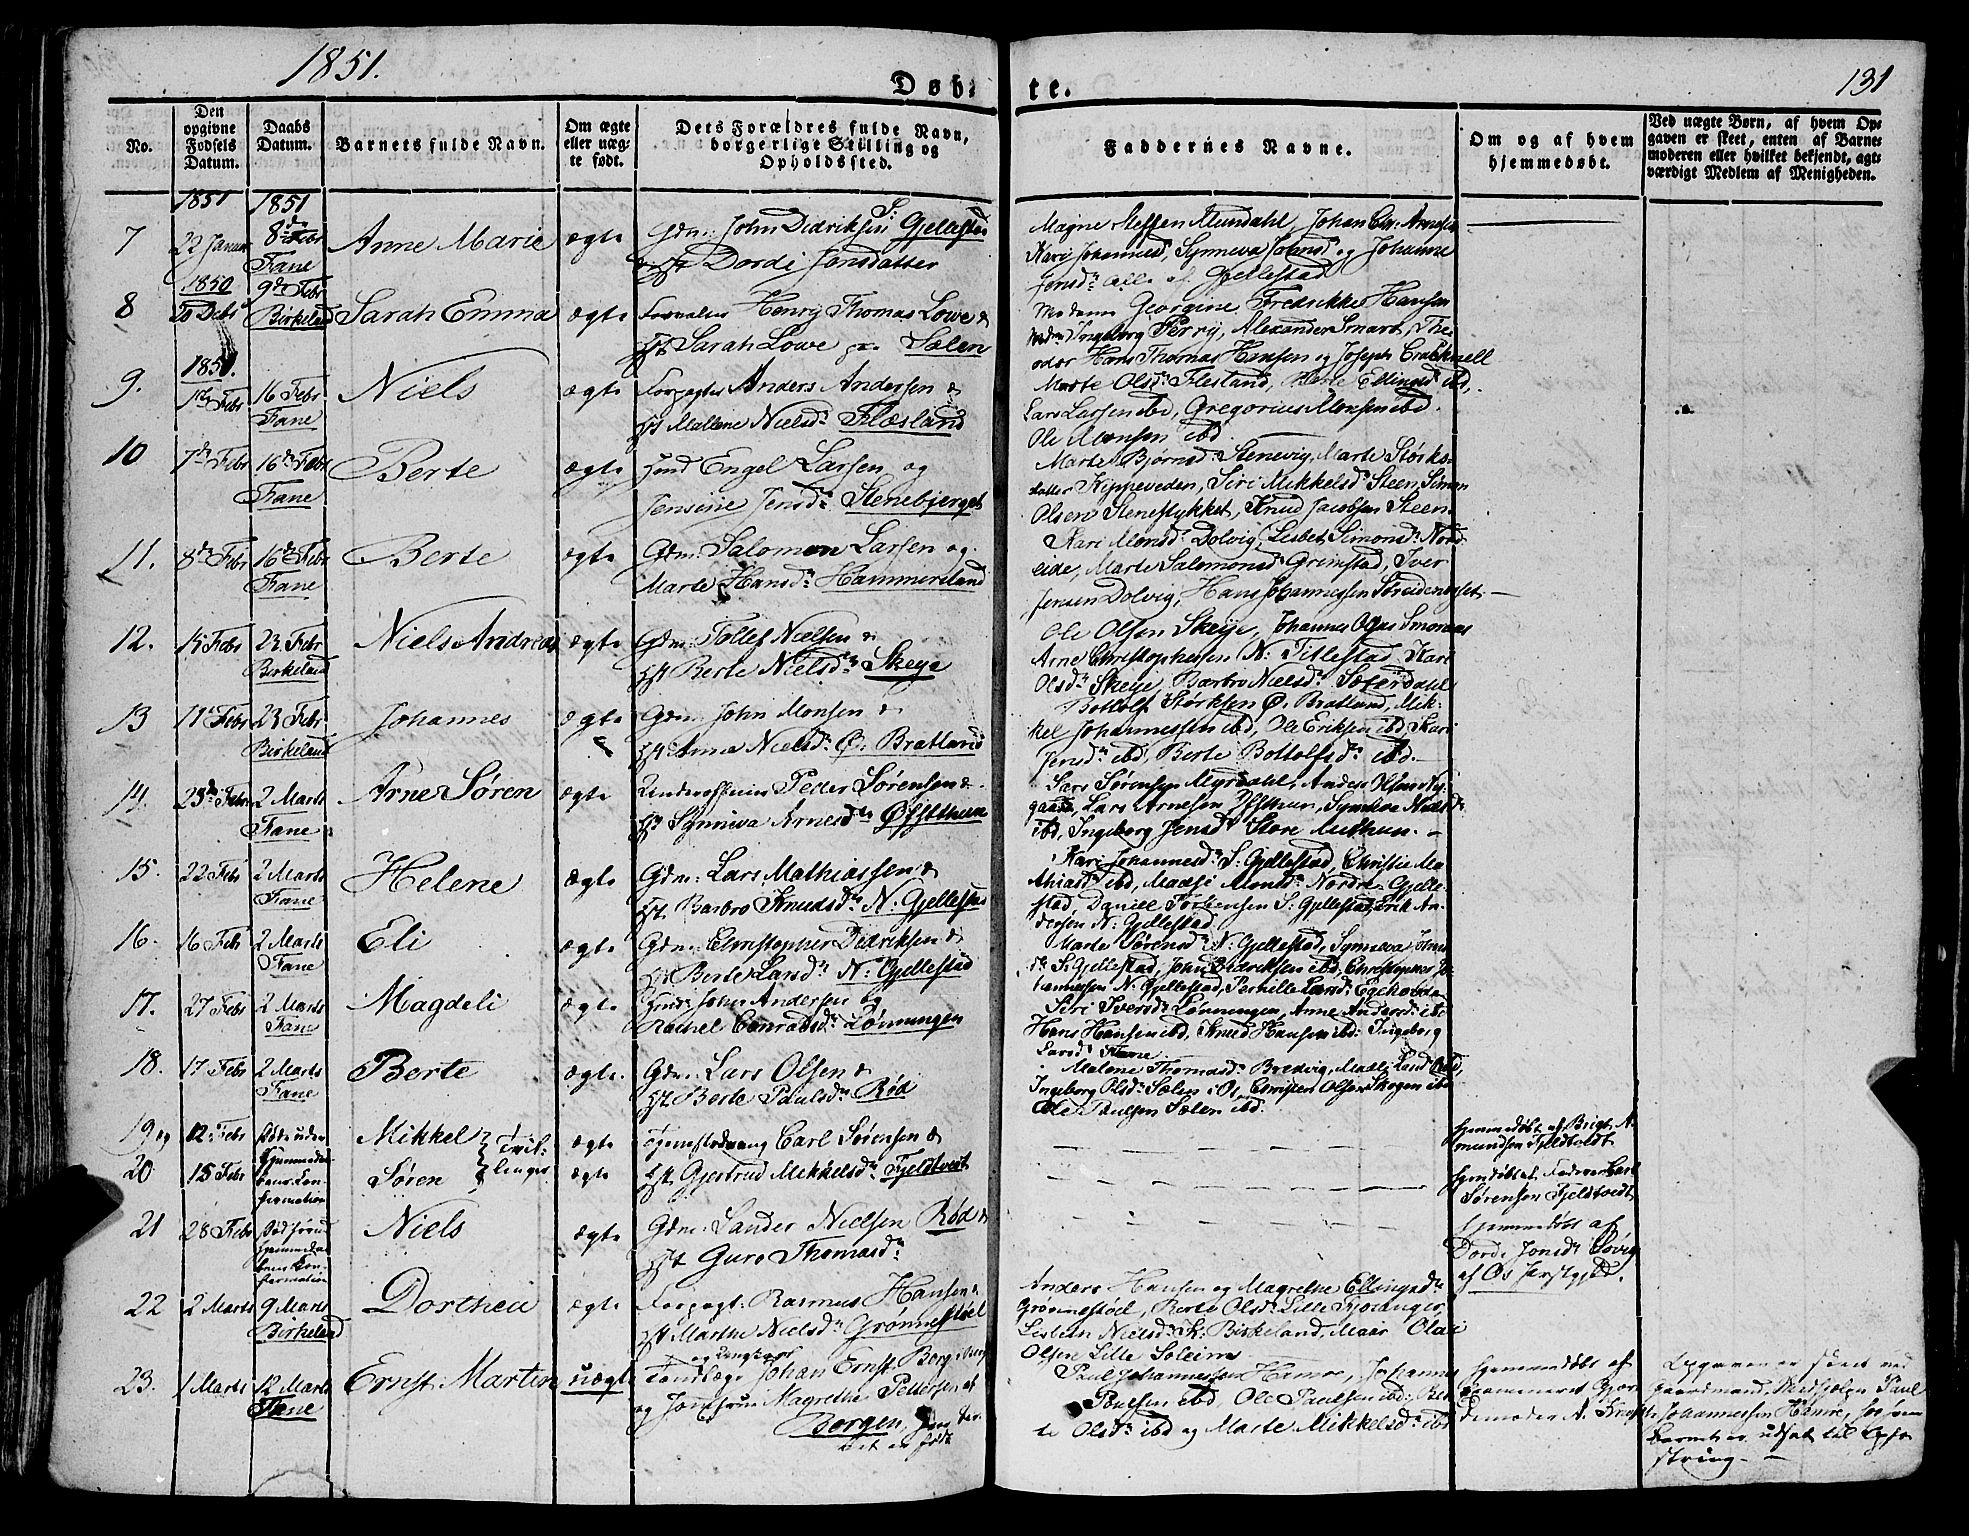 1851.
Døbte.
131
No.
Den opgivne Fødsels Datum.
Daabs Datum.
Barnets fulde Navn.
Om ægte eller uægte født.
Dets Forældres fulde Navn, borgerlige Stilling og Opholdssted.
Faddernes Navne.
Om og af hvem hjemmedøbt.
Ved uægte Børn, af hvem Opgaven er skeet, enten af Barnemoderen eller hvilket bekjendt, agtværdigt Medlem af Menigheden.
1851 1851
7 22 Januar 8de Febr Fane Anne Marie ægte Gdm: John Didriksen S: Gjellestad
Dordi Jonsdatter
Magne Steffen Mundahl, Johan Chr: Arnesen
Kari Johannesd:, Synneva Johnsd: og Johanna
Jensd: alle af Gjellestad
8 1850 20 Debr 9de Febr Birkeland Sarah Emma ægte Forvalter Henry Thomas Lowe &
Hst Sarah Lowe Sælen
Madame Georgine Fredrikke Hansen
Ingeborg Ferry, Alexander Smart, The-
odor Hans Thomas Hansen og Joseph Cracknell
9. 1851. 1ste Febr 16 Febr Fane Niels ægte Forpagter Anders Andersen &
Hst Mallene Nielsd: Flæsland
Marte Olsd: Flesland, Berte Ellingsd: ibd,
Lars Larsen ibd, Gregorius Monsen ibd.
Ole Monsen ibd.
10 7de Febr 16de Febr Fane Berte ægte Huusmd Engel Larsen og
Jensine Jensd: Stenebjerget
Marte Bjørnsd: Stenevig, Marte Størks-
datter Kippeveden, Siri Mikkelsd: Steen, Simon
Olsen Stenestykket, Knud Jacobsen Steen.
11. 8de Febr 16de Febr Fane Berte ægte Gdm: Salomon Larsen og
Marte Hansd: Hammersland
Kari Monsd: Dolvig, Lisbet Simonsd: Nord-
eide, Marte Salomonsd: Grimstad, Iver
Jensen Dolvig, Hans Johannessen Søreideneset
12. 15 Febr 23 Febr Birkeland Niels Andreas ægte Gdm: Tollef Nielsen &
Hst Berte Nielsd: Skeye
Ole Olsen Skeye, Johannes Olsen Smøraas
Arne Christophersen N: Titlestad, Kari
Olsd: Skeye, Barbro Nielsd: Sæterdahl
13 11te Febr 23 Febr Birkeland Johannes ægte Gdm: John Monsen &
Hst: Anna Nielsd: Ø: Bratland
Bottolf Størksen Ø. Bratland, Mik-
kel Johannessen ibd, Ole Eriksen ibd, Kari
Jensd: ibd, Berte Bottolfsd: ibd.
14. 23de Febr 2 Marts Fane Arne Søren ægte Underofficeer Peder Sørensen &
Hst Synniva Arnesd: Øfsthuun
Lars Sørensen Myrdahl, Anders Olsen Ny-
gaard, Lars Arnesen Øfsthuun, Synneva Nielsd:
ibd, Ingeborg Jensd: Store Milthun.
15. 22 Febr 2 Marts Fane Helene ægte Gdm: Lars Mathiassen &
Hst Barbro Knudsd: N. Gjellestad
Kari Johannesd: S: Gjellestad, Christie Ma-
thiasd: ibd, Madsi Monsd: Nordre Gjelle-
stad, Daniel Torkensen S: Gjellestad, Erik An-
dersen N: Gjellestad
16. 16 Febr 2 Marts Fane Eli ægte Gdm: Christopher Didriksen &
Hst Berte Larsd: N: Gjellestad
Marte Sørensd: N: Gjellestad, Synneva Johns
d: S: Gjellestad, John Didriksen ibd, Christopher Jo-
hannessen N. Gjellestad, Pernille Larsd:
17. 27 Febr 2 Marts Fane Magdeli ægte Huusmd: John Andersen og
Rachel Conradsd: Lønningen
Siri Iversd: Lønningen, Anne Andersd: ibd
Hans Hansen ibd, Knud Hansen ibd, Ingeborg
Larsd: Fane.
18. 17 Febr 2 Marts Fane Berte ægte Gdm: Lars Olsen &
Hst Berte Paulsd: Rød
Malene Thomasd: Bredvig,
Ingeborg Olsd: Sælen i Os, Christen Olsen Skogen ibd
Ole Paulsen Sælen ibd.
19 og 12te Febr Døde uden Hjemmedaabens Confirmation Mikkel } Tvil- ægte Carl Sørensen &
20 15 Febr Søren } linger ægte Hst: Gjertrud Mikkelsd: Fjeldtvedt
Hjemmedøbt af Brigt A-
mundsen Fjeldtvedt
Hjemdøbt af Faderen Carl
Sørensen Fjeldtvedt
21 28 Febr Død førend Hjemmedaabens Confirmation Niels ægte Gdm: Sander Nielsen Rød &
Hst Guro Thomasd:
Hjemmedøbt af
Dordi Jonsd:
af Os Præstegjeld.
22 2 Marts 9 Marts Birkeland Dorthea ægte Forpagt: Rasmus Hansen &
Hst Marthe Nielsd: Grønnestøel
Anders Hansen og Magrethe Ellingsd:
Grønnestøel, Berte Olsd: Lille Fjøsanger,
Lisbeth Nielsd: St: Birkeland, Olai
Olsen Lille Soleim
23. 1 Marts 12 Marts Fane Ernst Martin uægte og Ungkarl
Tandlæge Johan Ernst Borg i Bergen
og Jomfrue Magrethe Pettersen af
Borgen, hvor Bar-
net er født
Paul Johannessen Hamre, Johanne
Poulsen ibd, Ole Paulsen ibd: Ber-
te Olsd: ibd og Marte Mikkelsd: ibd
Hjemmedøbt af
Examineret Gjor-
demoder A.
Opgaven er skeet ved
Gaardmand, Medhjelper Paul
Johannessen Hamre, hos hvem
Barnet er udsat til Opfo-
string.